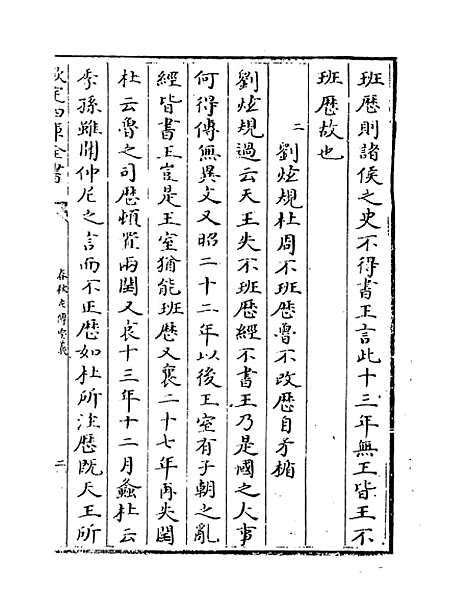 班歴則諸侯之史不得書王言此十三年無王皆王不
班歴故也
二 劉炫規杜周不班歴魯不改歴自矛楯
劉炫規過云天王失不班歴經不書王乃是國之大事
何得傳無異文又昭二十二年以後王室有子朝之亂
經皆書王豈是王室猶能班歴又襄二十七年再失閏
杜云魯之司歴頓置兩閏又哀十三年十二月螽杜云
季孫雖聞仲尼之言而不正歴如杜所注歴既天王所
欽定四庫全書
春秋左傳要義
二